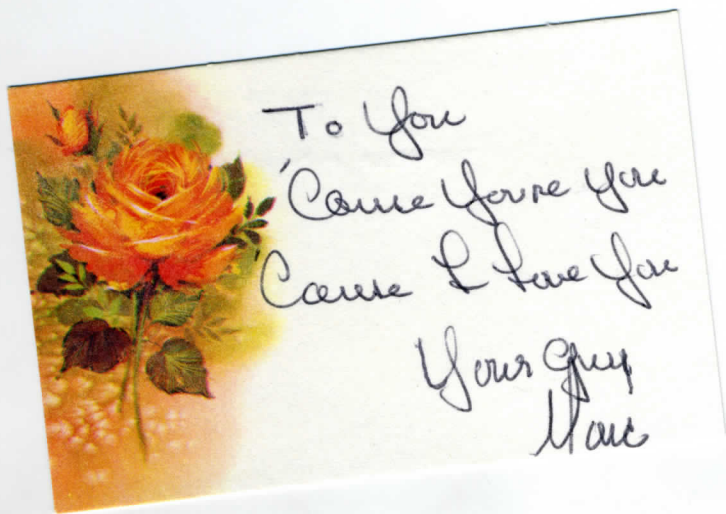 To You
'Cause You're You
Cause I Love You
Your Guy
Marc